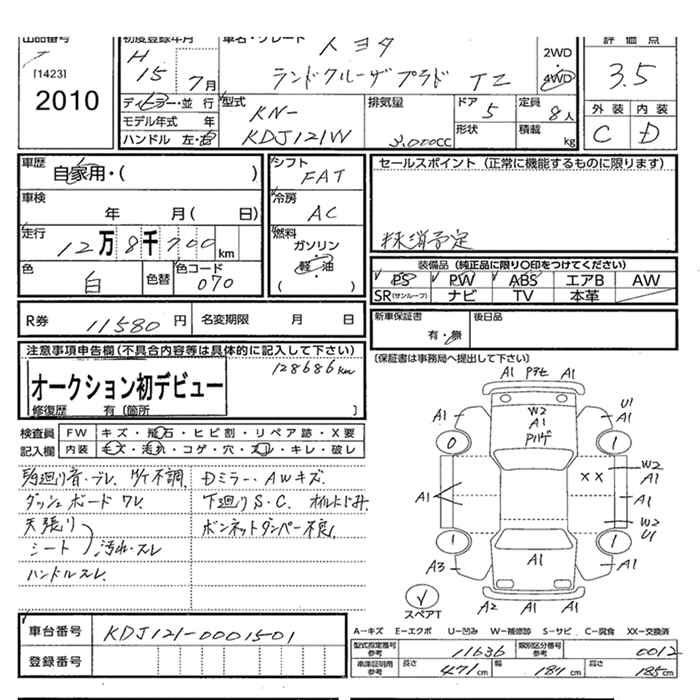 出品番号
[1423]
2010
初度登録年月
H
15 7月
車名・グレード
トヨタ
ランドクルーザプラド TZ
2WD
4WD
評価点
3.5
外装 内装
C D
ディーゼル・並行
モデル年式 年
ハンドル 左・右
型式
KN-
KDJ121W
排気量
3,000cc
ドア
5
形状
定員
8人
積載
kg
車歴
自家用・( )
車検
年 月( 日)
走行
12万8千700km
色
白
色替
色コード
070
シフト
FAT
冷房
AC
燃料
ガソリン
・
軽油
( )
セールスポイント (正常に機能するものに限ります)
抹消予定
装備品 (純正品に限り〇印をつけてください)
PS PW ABS エアB AW
SR(サンルーフ) ナビ TV 本革
R券 11580円
名変期限 月 日
新車保証書
有・無
後日品
(保証書は事務局へ提出して下さい)
注意事項申告欄(不具合内容等は具体的に記入して下さい)
128686km
オークション初デビュー
修復歴 有 〔箇所 〕
検査員
記入欄
FW キズ・飛石・ヒビ割・リペア跡・X要
内装 キズ・汚れ・コゲ・穴・スレ・キレ・破レ
足廻り音・ブレ. リヤ不調.
ダッシュボード ワレ.
天張り
シート
汚れ・スレ
ハンドルスレ.
Dミラー・AWキズ.
下廻りS・C. オイルにじみ.
ボンネットダンパー不良.
A1 A1
A1 W2 U1
A1 A1
0 1
XX W2
A1
A1
W2
U1
1 1
A1
A3 A1
A2 A1 A1
スペアT
A−キズ E−エクボ U−凹み W−補修跡 S−サビ C−腐食 XX−交換済
車台番号 KDJ121-0001501
登録番号
型式指定番号
参考
11636
類別区分番号
参考
0012
車庫証明用
参考
長さ
471cm
幅
187cm
高さ
185cm